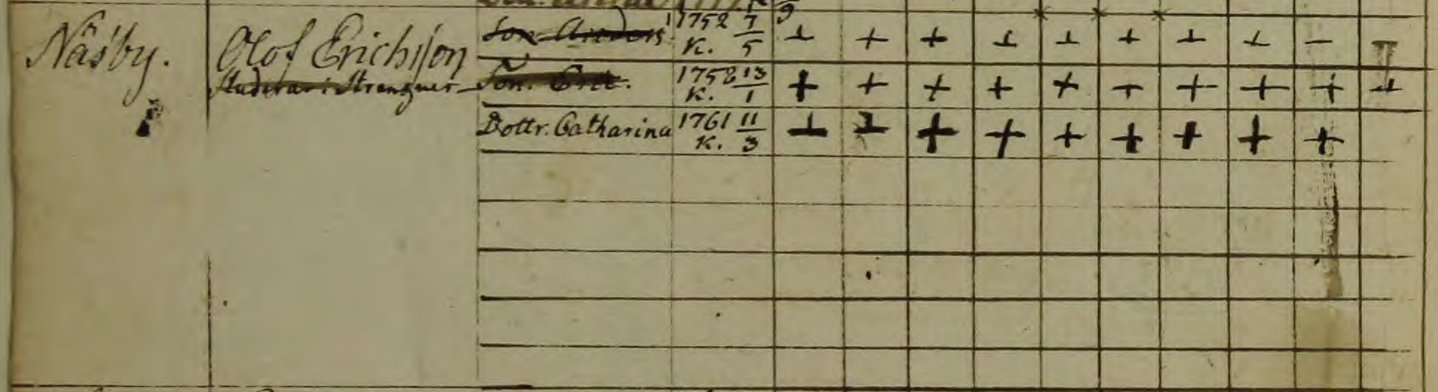 Näsby. Olof Erichsson Son Anders 1752 7/5 K.
Studerar i Strengnes Son. Eric. 1758 13/1 K.
Dottr. Catharina 1761 11/3 K.